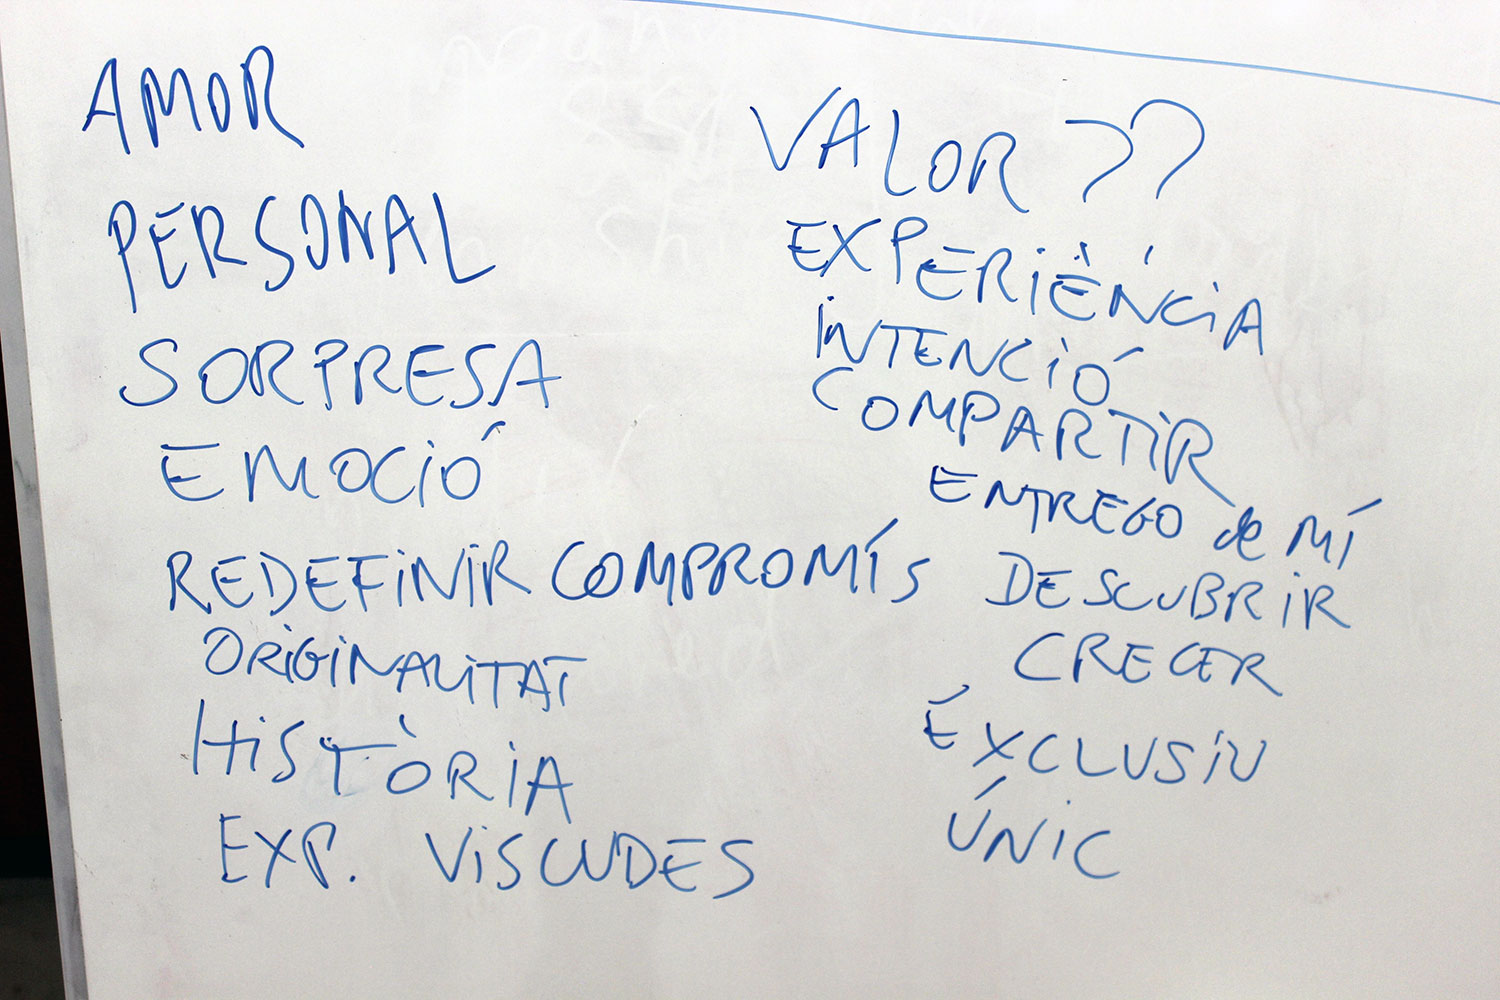 AMOR
PERSONAL
SORPRESA
EMOCIÓ
REDEFINIR COMPROMÍS
ORIGINALITAT
HISTÒRIA
EXP. VISCUDES
VALOR ??
EXPERIÈNCIA
INTENCIÓ
COMPARTIR
ENTREGO de MÍ
DESCUBRIR
CRECER
ÉXCLUSIU
ÚNIC